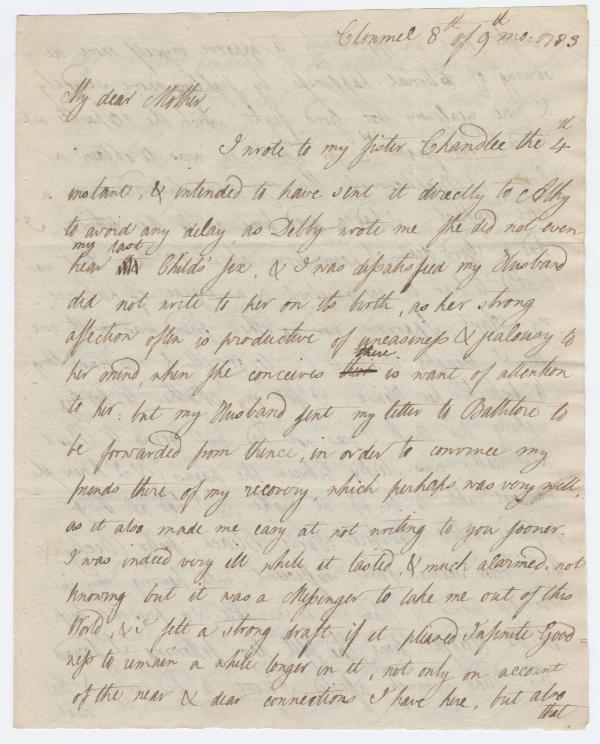 Clonmel 8th of 9th mo: 1783
My dear Mother,
I wrote to my sister Chandlee the 4th
instant, & intended to have sent it directly to Athy
to avoid any delay, as Debby wrote me she did not even
hear my last Childs' sex, & I was dissatisfied my Husband
did not write to her on its birth, as her strong
affection often is productive of uneasiness & jealousy to
her mind, when she conceives there is want of attention
to her: but my Husband sent my letter to Ballitore to
be forwarded from thence, in order to convince my
friends there of my recovery, which perhaps was very well,
as it also made me easy at not writing to you sooner.
I was indeed very ill while it lasted, & much alarmed, not
knowing but it was a Messenger to take me out of this
World, & I felt a strong draft if it pleased Infinite Good=
ness to remain a while longer in it, not only on account
of the near & dear connections I have here, but also
that